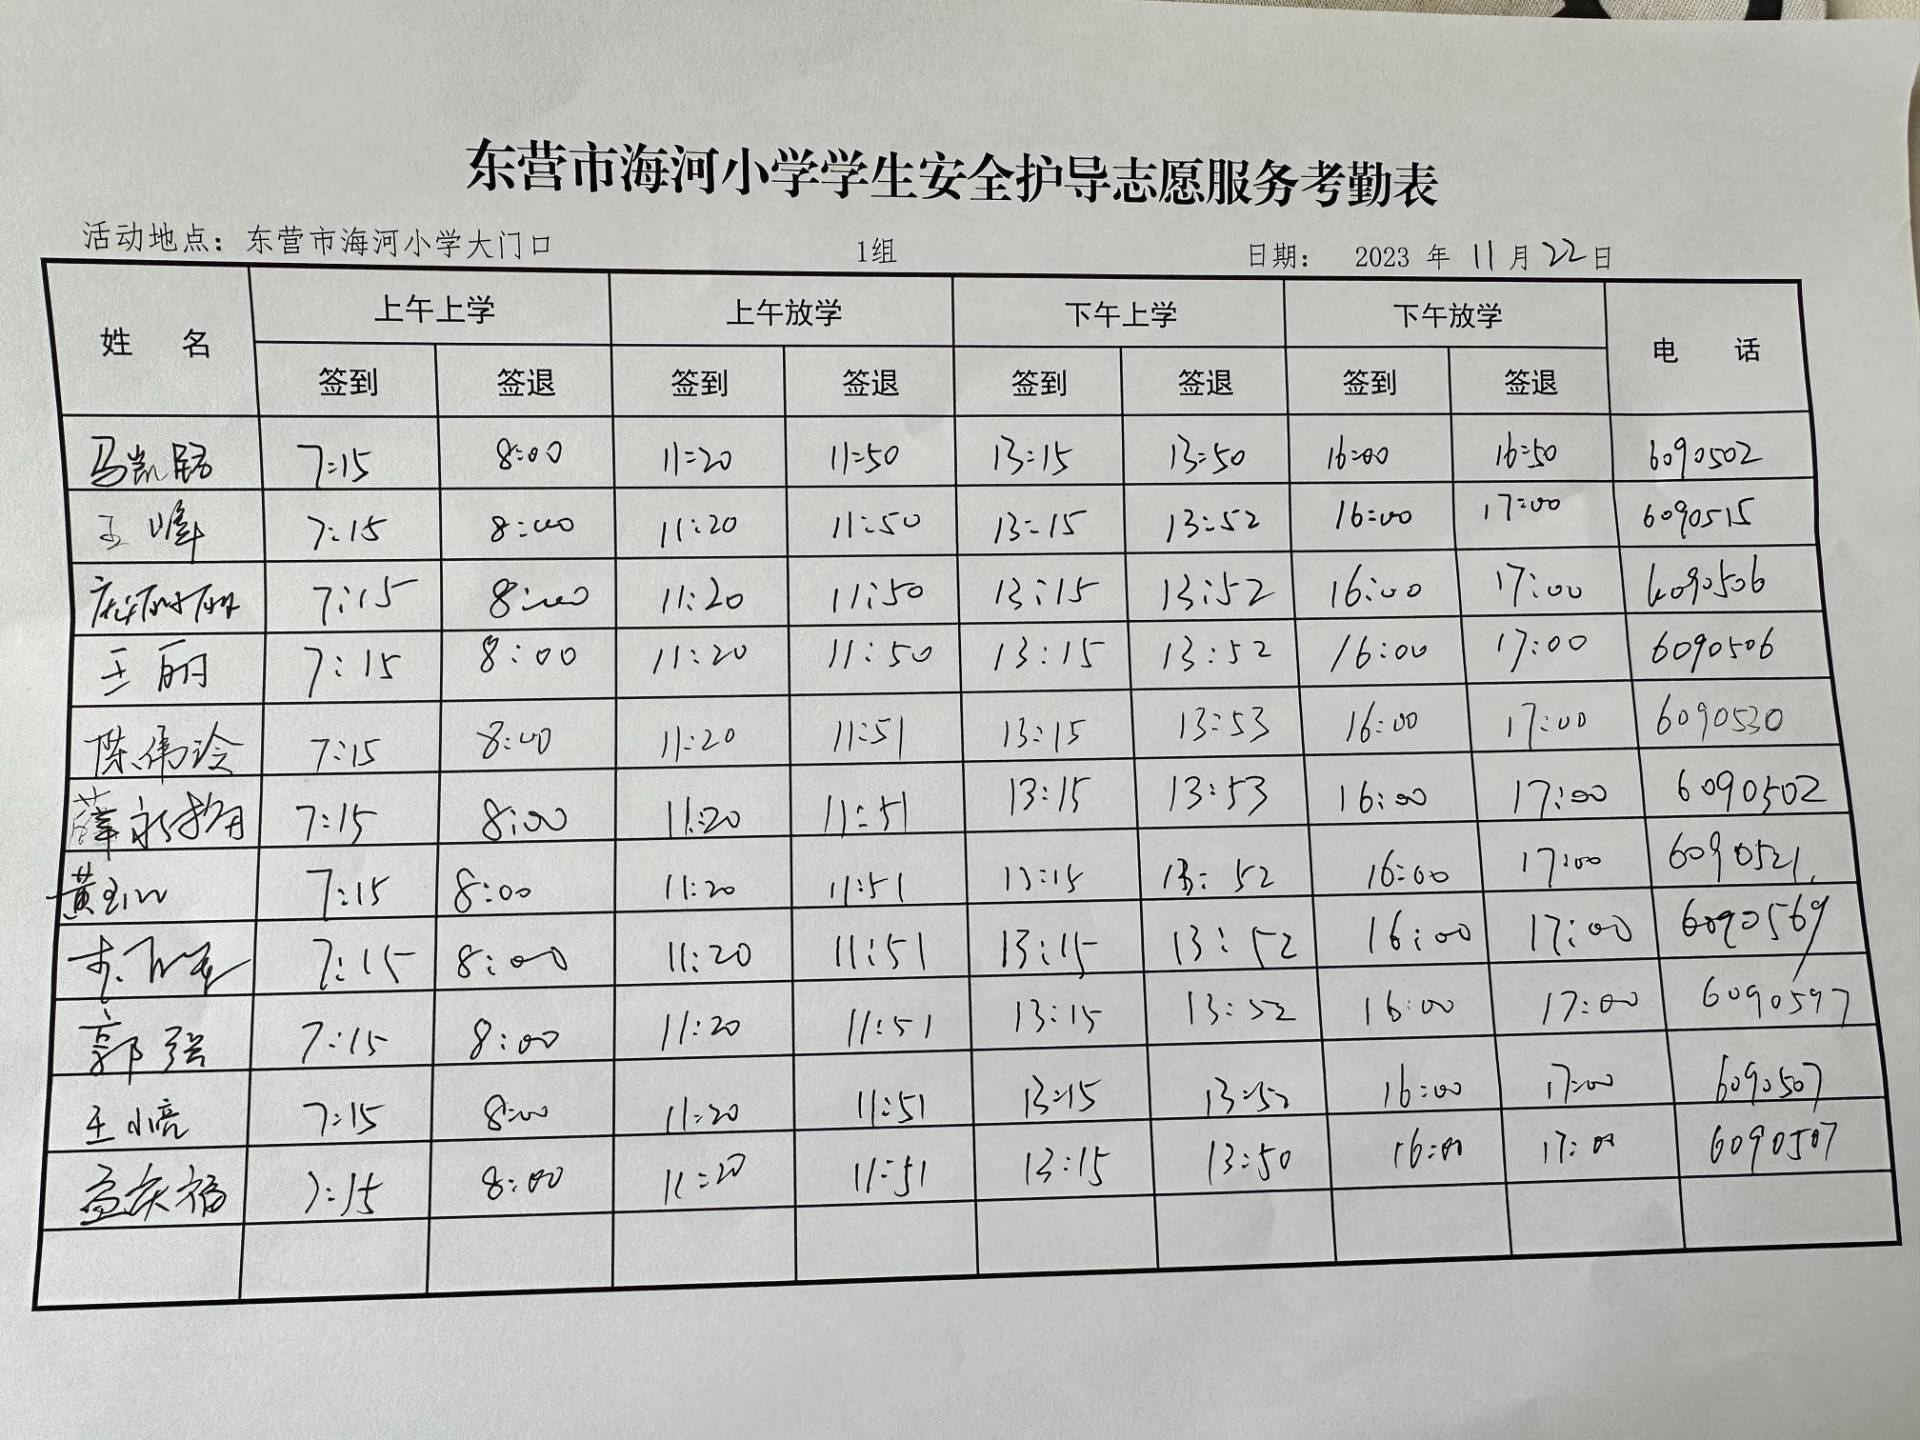 东营市海河小学学生安全护导志愿服务考勤表
活动地点：东营市海河小学大门口 1组 日期： 2023 年 11 月 22 日
姓 名 上午上学 上午放学 下午上学 下午放学 电 话
签到 签退 签到 签退 签到 签退 签到 签退
马凯路 7:15 8:00 11:20 11:50 13:15 13:50 16:00 16:50 6090502
王峰 7:15 8:00 11:20 11:50 13:15 13:52 16:00 17:00 6090515
7:15 8:00 11:20 11:50 13:15 13:52 16:00 17:00 6090506
王丽 7:15 8:00 11:20 11:50 13:15 13:52 16:00 17:00 6090506
陈伟玲 7:15 8:00 11:20 11:51 13:15 13:53 16:00 17:00 6090530
薛 7:15 8:00 11:20 11:51 13:15 13:53 16:00 17:00 6090502
黄 7:15 8:00 11:20 11:51 13:15 13:52 16:00 17:00 6090521
7:15 8:00 11:20 11:51 13:15 13:52 16:00 17:00 6090569
郭强 7:15 8:00 11:20 11:51 13:15 13:52 16:00 17:00 6090597
王小亮 7:15 8:00 11:20 11:51 13:15 13:52 16:00 17:00 6090507
孟庆福 7:15 8:00 11:20 11:51 13:15 13:50 16:00 17:00 6090507